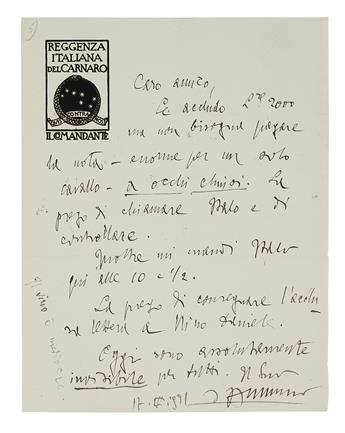 REGGENZA
ITALIANA
DEL CARNARO
IL COMANDANTE
Caro amico,
Le accludo L.re 2000
ma non bisogna pagare
la nota - enorme per un solo
cavallo - a occhi chiusi. La
prego di chiamare Italo e di
controllare.
Inoltre mi mandi Italo
qui alle 10 e 1/2.
La prego di consegnare l'acclu-
sa lettera a Nino Daniele.
Oggi sono assolutamente
invisibile per tutti. Il Suo
il vino è